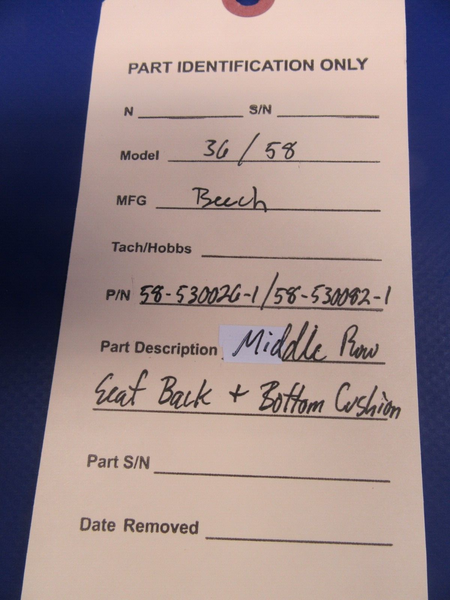 PART IDENTIFICATION ONLY
N S/N
Model 36 / 58
MFG Beech
Tach/Hobbs
P/N 58-530026-1/58-530082-1
Part Description Middle Row
Seat Back + Bottom Cushion
Part S/N
Date Removed